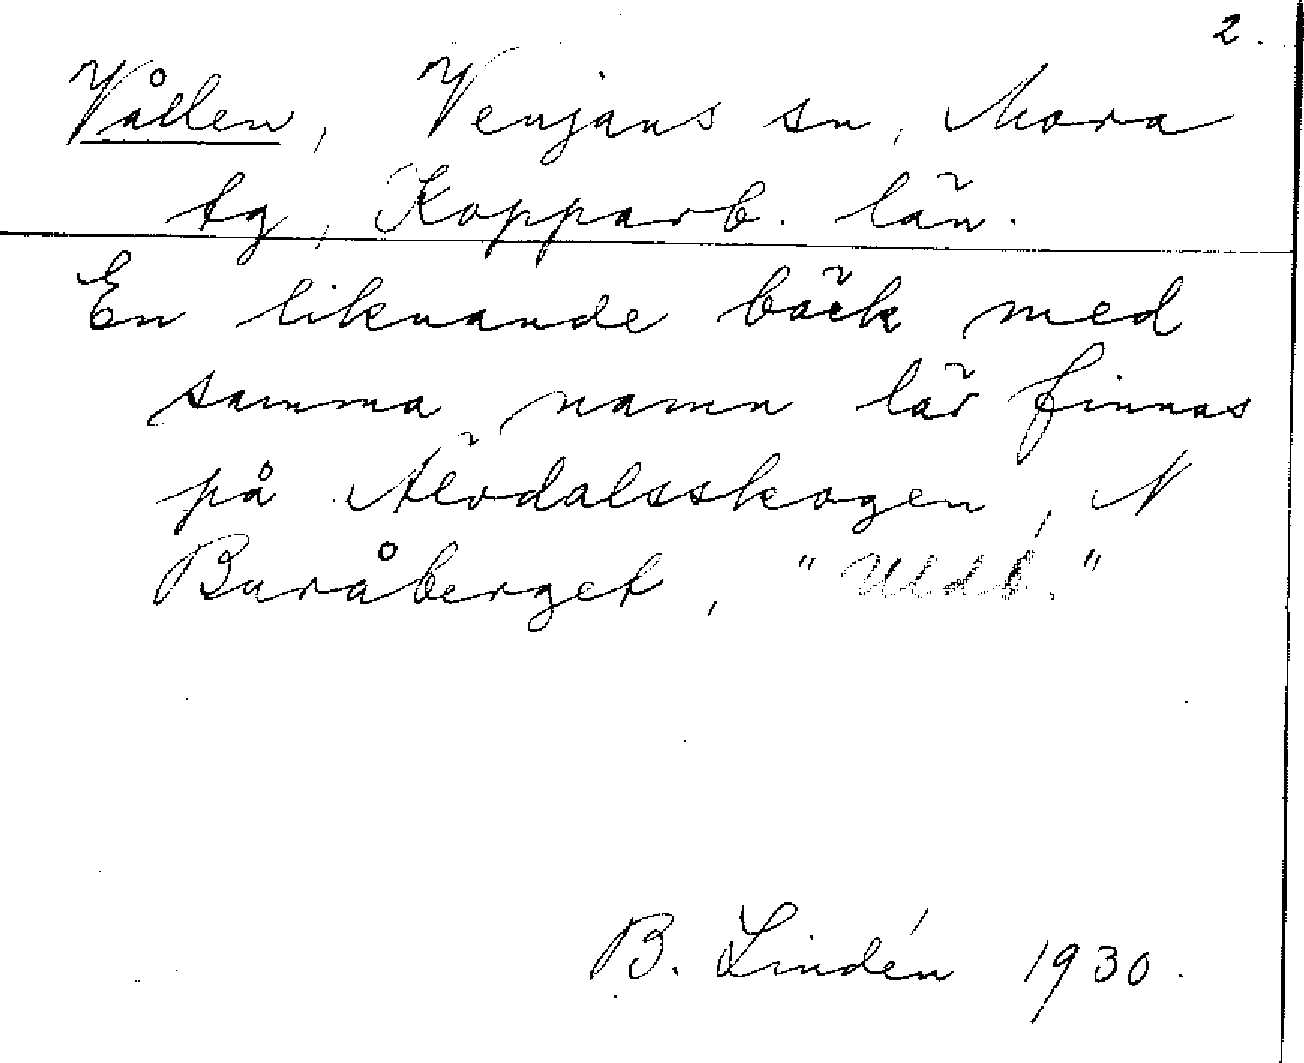 2.
Vållen, Venjans sn, Mora
tg, Kopparb. län.
En liknande bäck med
samma namn lär finnas
på Älvdalsskogen, N
Buråberget,
B. Lindén 1930.